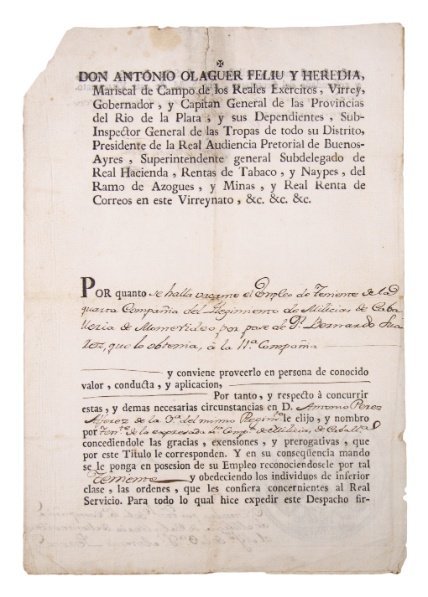 ✠
DON ANTONIO OLAGUER FELIU Y HEREDIA,
Mariscal de Campo de los Reales Exercitos, Virrey,
Gobernador, y Capitan General de las Provincias
del Rio de la Plata, y sus Dependientes, Sub-
Inspector General de las Tropas de todo su Distrito,
Presidente de la Real Audiencia Pretorial de Buenos-
Ayres, Superintendente general Subdelegado de
Real Hacienda, Rentas de Tabaco, y Naypes, del
Ramo de Azogues, y Minas, y Real Renta de
Correos en este Virreynato, &c. &c. &c.
POR quanto se halla vacante el Empleo de Teniente de la
quarta Compañia del Regimiento de Milicias de Caba
lleria de Montevideo, por pase de Dn. Bernardo Sua
rez, que lo obtenia, à la 11a. Compañia
y conviene proveerlo en persona de conocido
valor, conducta, y aplicacion,
Por tanto, y respecto à concurrir
estas, y demas necesarias circunstancias en D. Antonio Perez
Alferez de la del mismo le elijo, y nombro
por Tente. de la expresada Compa. de Milicias, de
concediendole las gracias, exensiones, y prerogativas, que
por este Titulo le corresponden. Y en su conseqüencia mando
se le ponga en posesion de su Empleo reconociendosele por tal
Teniente y obedeciendo los individuos de inferior
clase, las ordenes, que les confiera concernientes al Real
Servicio. Para todo lo qual hice expedir este Despacho fir-